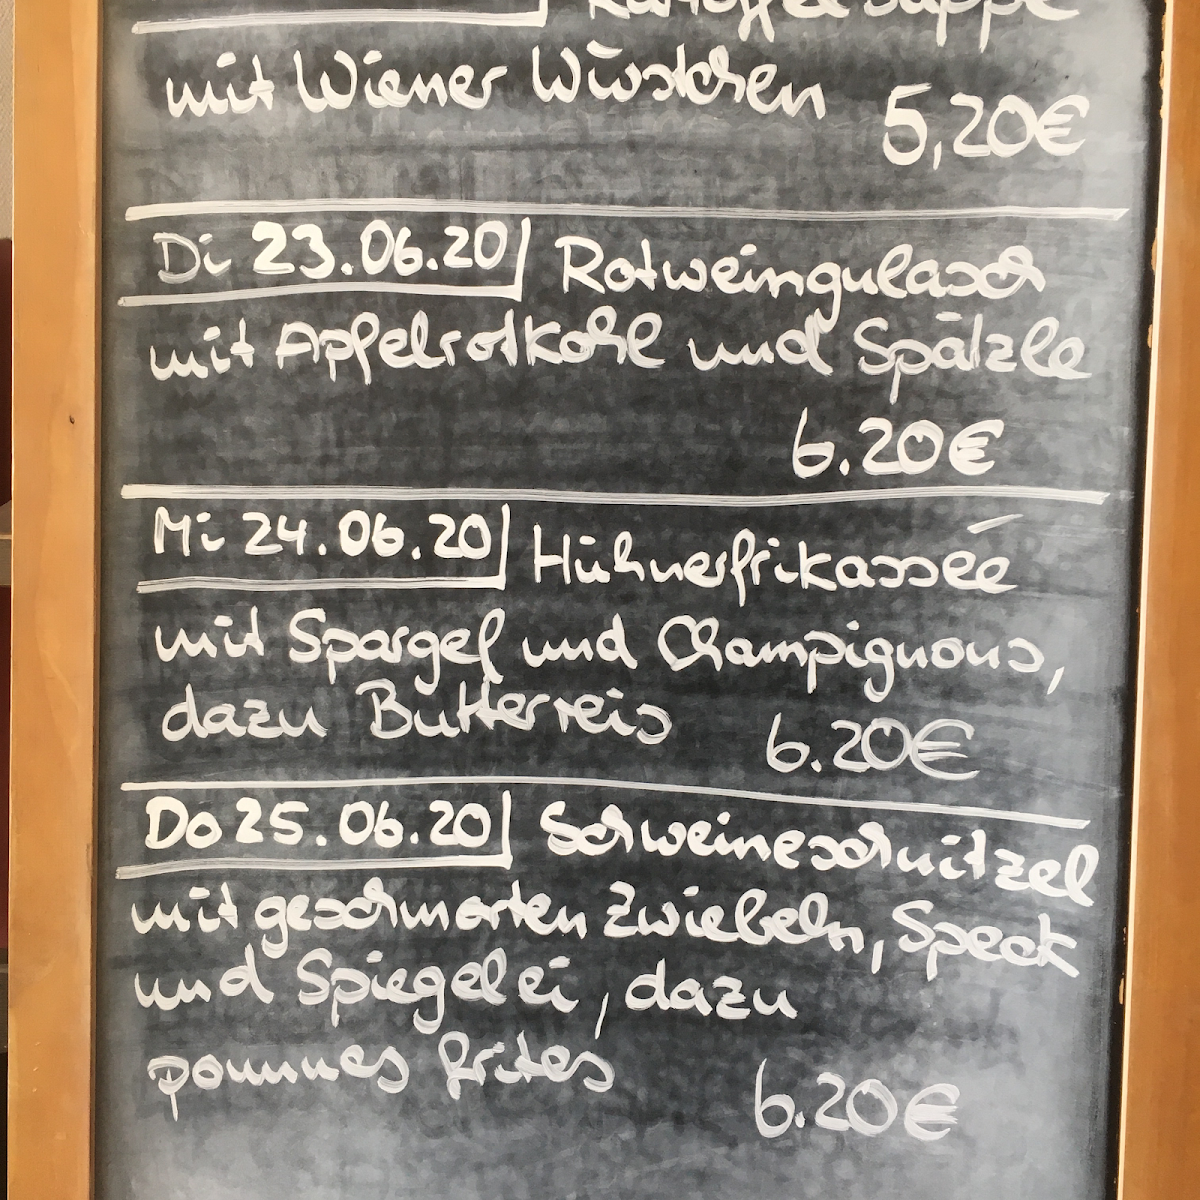 Kartoffelsuppe
mit Wiener Würstchen 5,20€
Di 23.06.20 Rotweingulasch
mit Apfelrotkohl und Spätzle
6.20€
Mi 24.06.20 Hühnerfrikassée
mit Spargel und Champignons,
dazu Butterreis 6.20€
Do 25.06.20 Schweineschnitzel
mit geschmorten Zwiebeln, Speck
und Spiegelei, dazu
pommes frites
6.20€